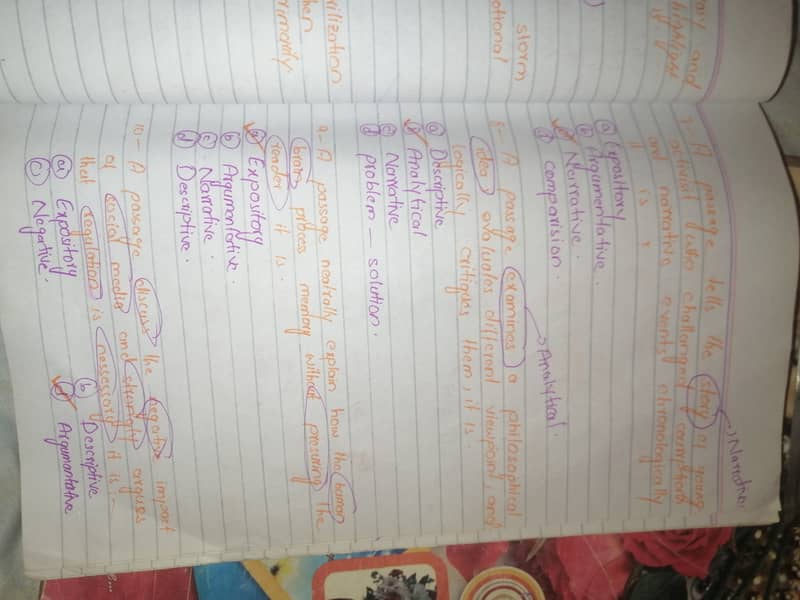 tary and
highlight
storm
ational
rilization
hen
rmality
→ Narrative:
7- A passage tells the story of young
activist who challanged
and narrative events chronologically
it is,
(a) Expository
(b) Argumentative.
(c) Narrative.
(d) comparision.
→ Analytical.
8- A passage examines a philosophical
idea, evaluates different viewpoint, and
logically critiques them, it is.
(a) Discriptive
(b) Analytical
(c) Narrative
(d) problem - solution.
9- A passage neutrally explain how the human
brain process memory without presuring the
reader it is.
(a) Expository
(b) Argumentative.
(c) Narrative.
(d) Descriptive.
10- A passage discuss the negative impact
of social media and straight argues
that regulation is nessessary it is -
(a) Expository
(b) Descriptive
(c) Negative.
(d) Argumantative